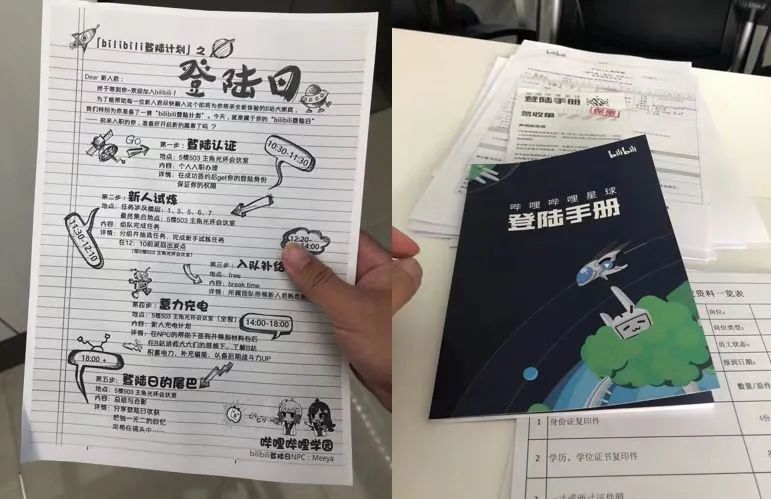 「bilibili登陆计划」之
登陆日
Dear 新人君:
终于等到你~欢迎加入bilibili!
为了能帮助每一位新人君尽快融入这个即将为你带来全新体验的B站大家庭,
我们特别为你准备了一套“bilibili登陆计划”。今天,就是属于你的“bilibili登陆日”
前来入职的你,准备好开启新的篇章了吗?
Go
第一步:登陆认证
10:30-11:30
地点:5楼503 主角光环会议室
内容:个人入职办理
详情:在成功签约后get你的登陆身份
保证你的权限
第二步:新人试炼
地点:任务涉及楼层:1、3、5、6、7
最终集合地点:5楼503 主角光环会议室
内容:组队完成任务
详情:分组并抽选任务,完成新手试炼任务
在12:10前返回出发点
11:30-12:10
12:20-14:00
第三步:入队补给
地点:free
内容:break time
详情:所属团队带领新人君熟悉
第四步:蓄力充电
地点:5楼503 主角光环会议室(全程)
内容:新人充电计划
详情:在NPC的帮助下签到并得到材料包后
在B站讲师大大们的带领下,了解B站
积蓄电力,补充磁能,以备后期战斗力UP
14:00-18:00
18:00 +
第五步:登陆日的尾巴
地点:5楼503 主角光环会议室
内容:总结与合影
详情:分享登陆日收获
把独一无二的回忆
定格在镜头中……
哔哩哔哩学园
bilibili登陆日NPC:Meeya
bilibili
登陆手册
签收单
bilibili
哔哩哔哩星球
登陆手册
资料一览表
岗位:
岗位类型:
员工状态:
报到日期:
数量/原件
1 身份证复印件
2 学历、学位证书复印件